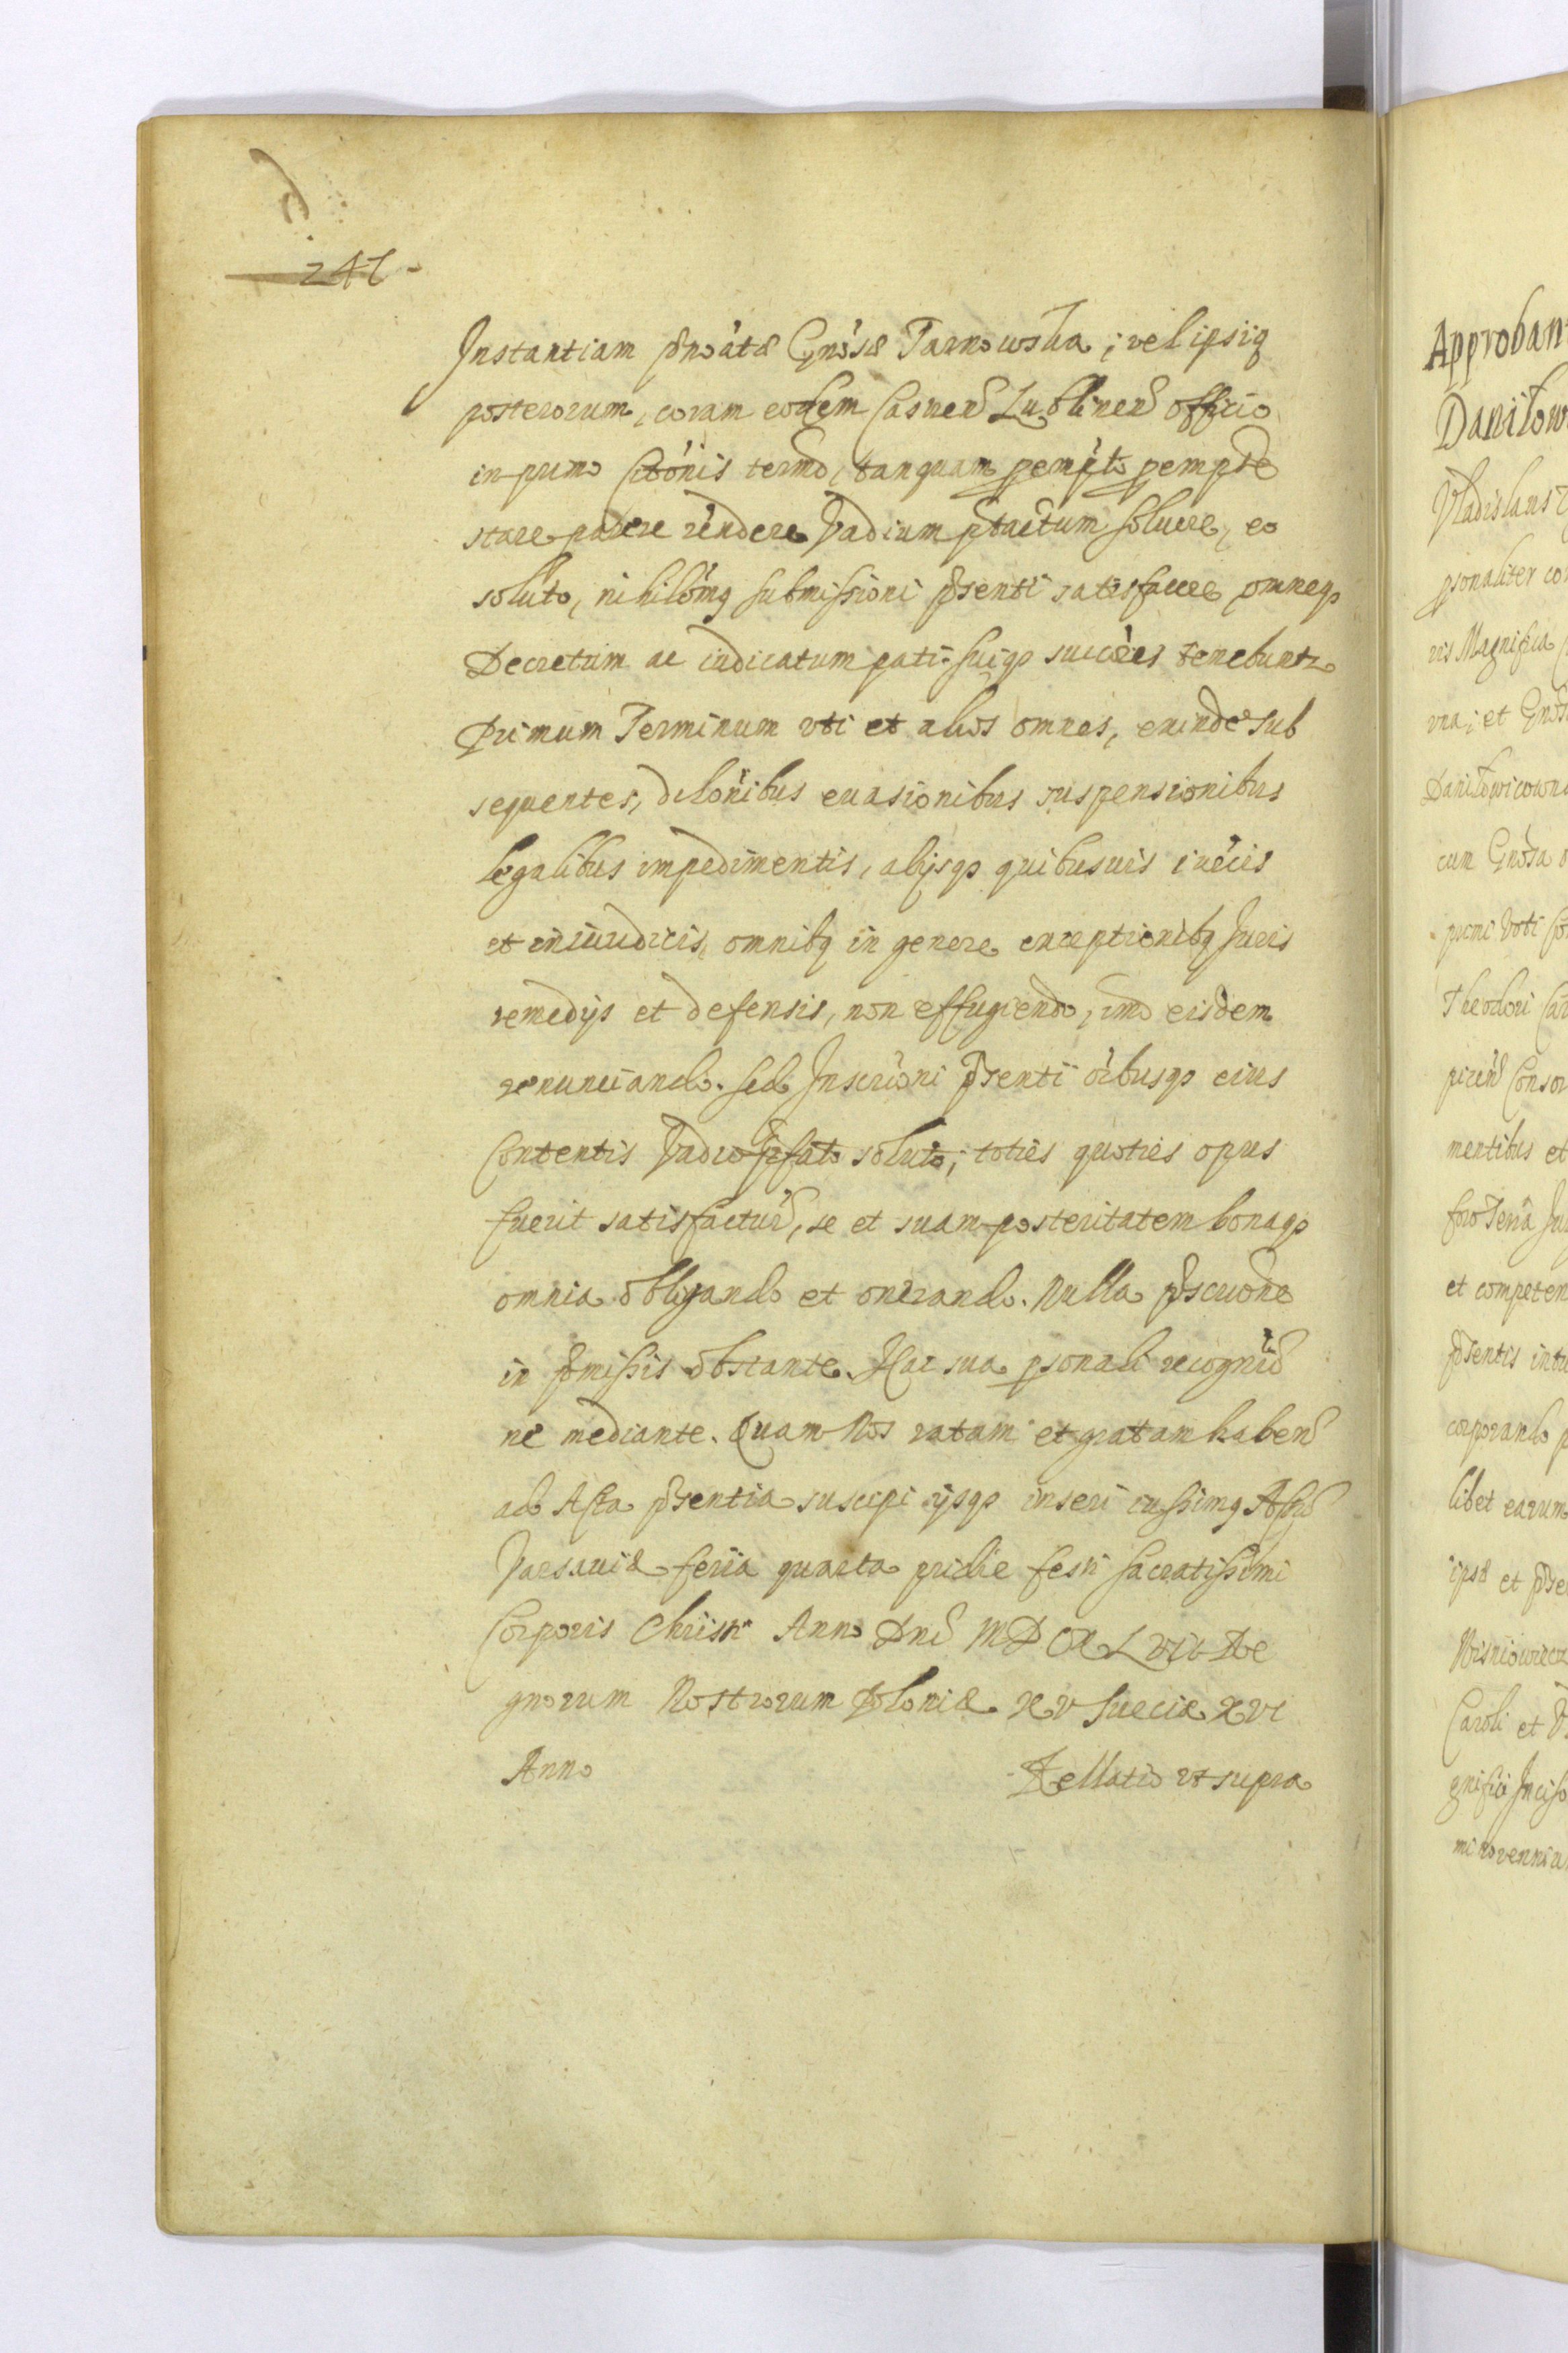 241
Instantiam pnoatæ Gnosæ Tarnowska, vel ipsiq
posterorum, coram eodem Castren Lublinen officio
in primo Citonis termo, tanquam pempto pempte
stare parere rendere Vadium ptactum soluere, eo
soluto, nihilomq submissioni pnsenti satisfacere omneqz
Decretum ac iudicatum pati suiqz succres tenebuntr
Primum Terminum uti et alios omnes, exinde sub
sequentes, dilonibus euasionibus suspensionibus
legalibus impedimentis, alijsqz quibusuis iuecis
et iniuridicis, omnibq in genere exceptionibq Iuris
remedijs et defensis, non effugiendo, imo eisdem
renunciando. Sed Inscrioni pnsenti oibusqz eius
Contentis Vadio pfato soluto, toties quoties opus
fuerit satisfactur, se et suam posteritatem bonaqz
omnia obligando et onerando. Nulla pscrione
in pmissis obstante. Hac sua psonali recognitio
ne mediante. Quam Nos ratam et gratam haben
ad Acta psentia suscipi ijsqz inseri iussimq Actu
Varsauiæ feria quarta pridie festi sacratissimi
Corporis Christi Anno Dni MDCXLVII Re
gnorum Nostrorum Poloniæ XV Sueciæ XVI
Anno
Rellatio ut supra
Approban
Danilow
Vladislaus
psonaliter co
ris Magnifica
una, et Gnosa
Danilowicowna
cum Gnosa
primi Voti
Theodori
Consor
mentibus et
foro
et competen
psentis intu
corporando
libet earum
ipsæ et
Wisniowiecz
Caroli et
gnifici